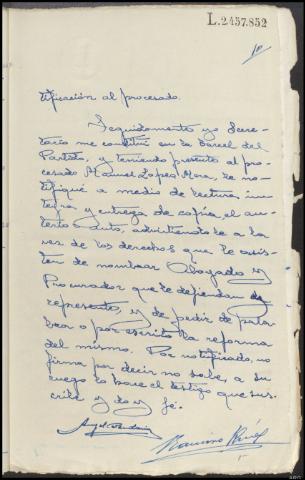 L.2457.852
tificación al procesado.
Seguidamente yo Secre-
tario me constituí en la Carcel del
Partido, y teniendo presente al pro-
cesado Manuel Lopez Mora, le no-
tifiqué a medio de lectura ínte-
gra y entrega de copia, el an-
terior Auto, advirtiendole a la
vez de los derechos que le asis-
ten de nombrar Abogado y
Procurador que le defiendan
represente, y de pedir de pala-
bra o por escrito la reforma
del mismo. Por notificado, no
firma por decir no sabe, a su
ruego lo hace el testigo que sus-
cribe y doy fé.